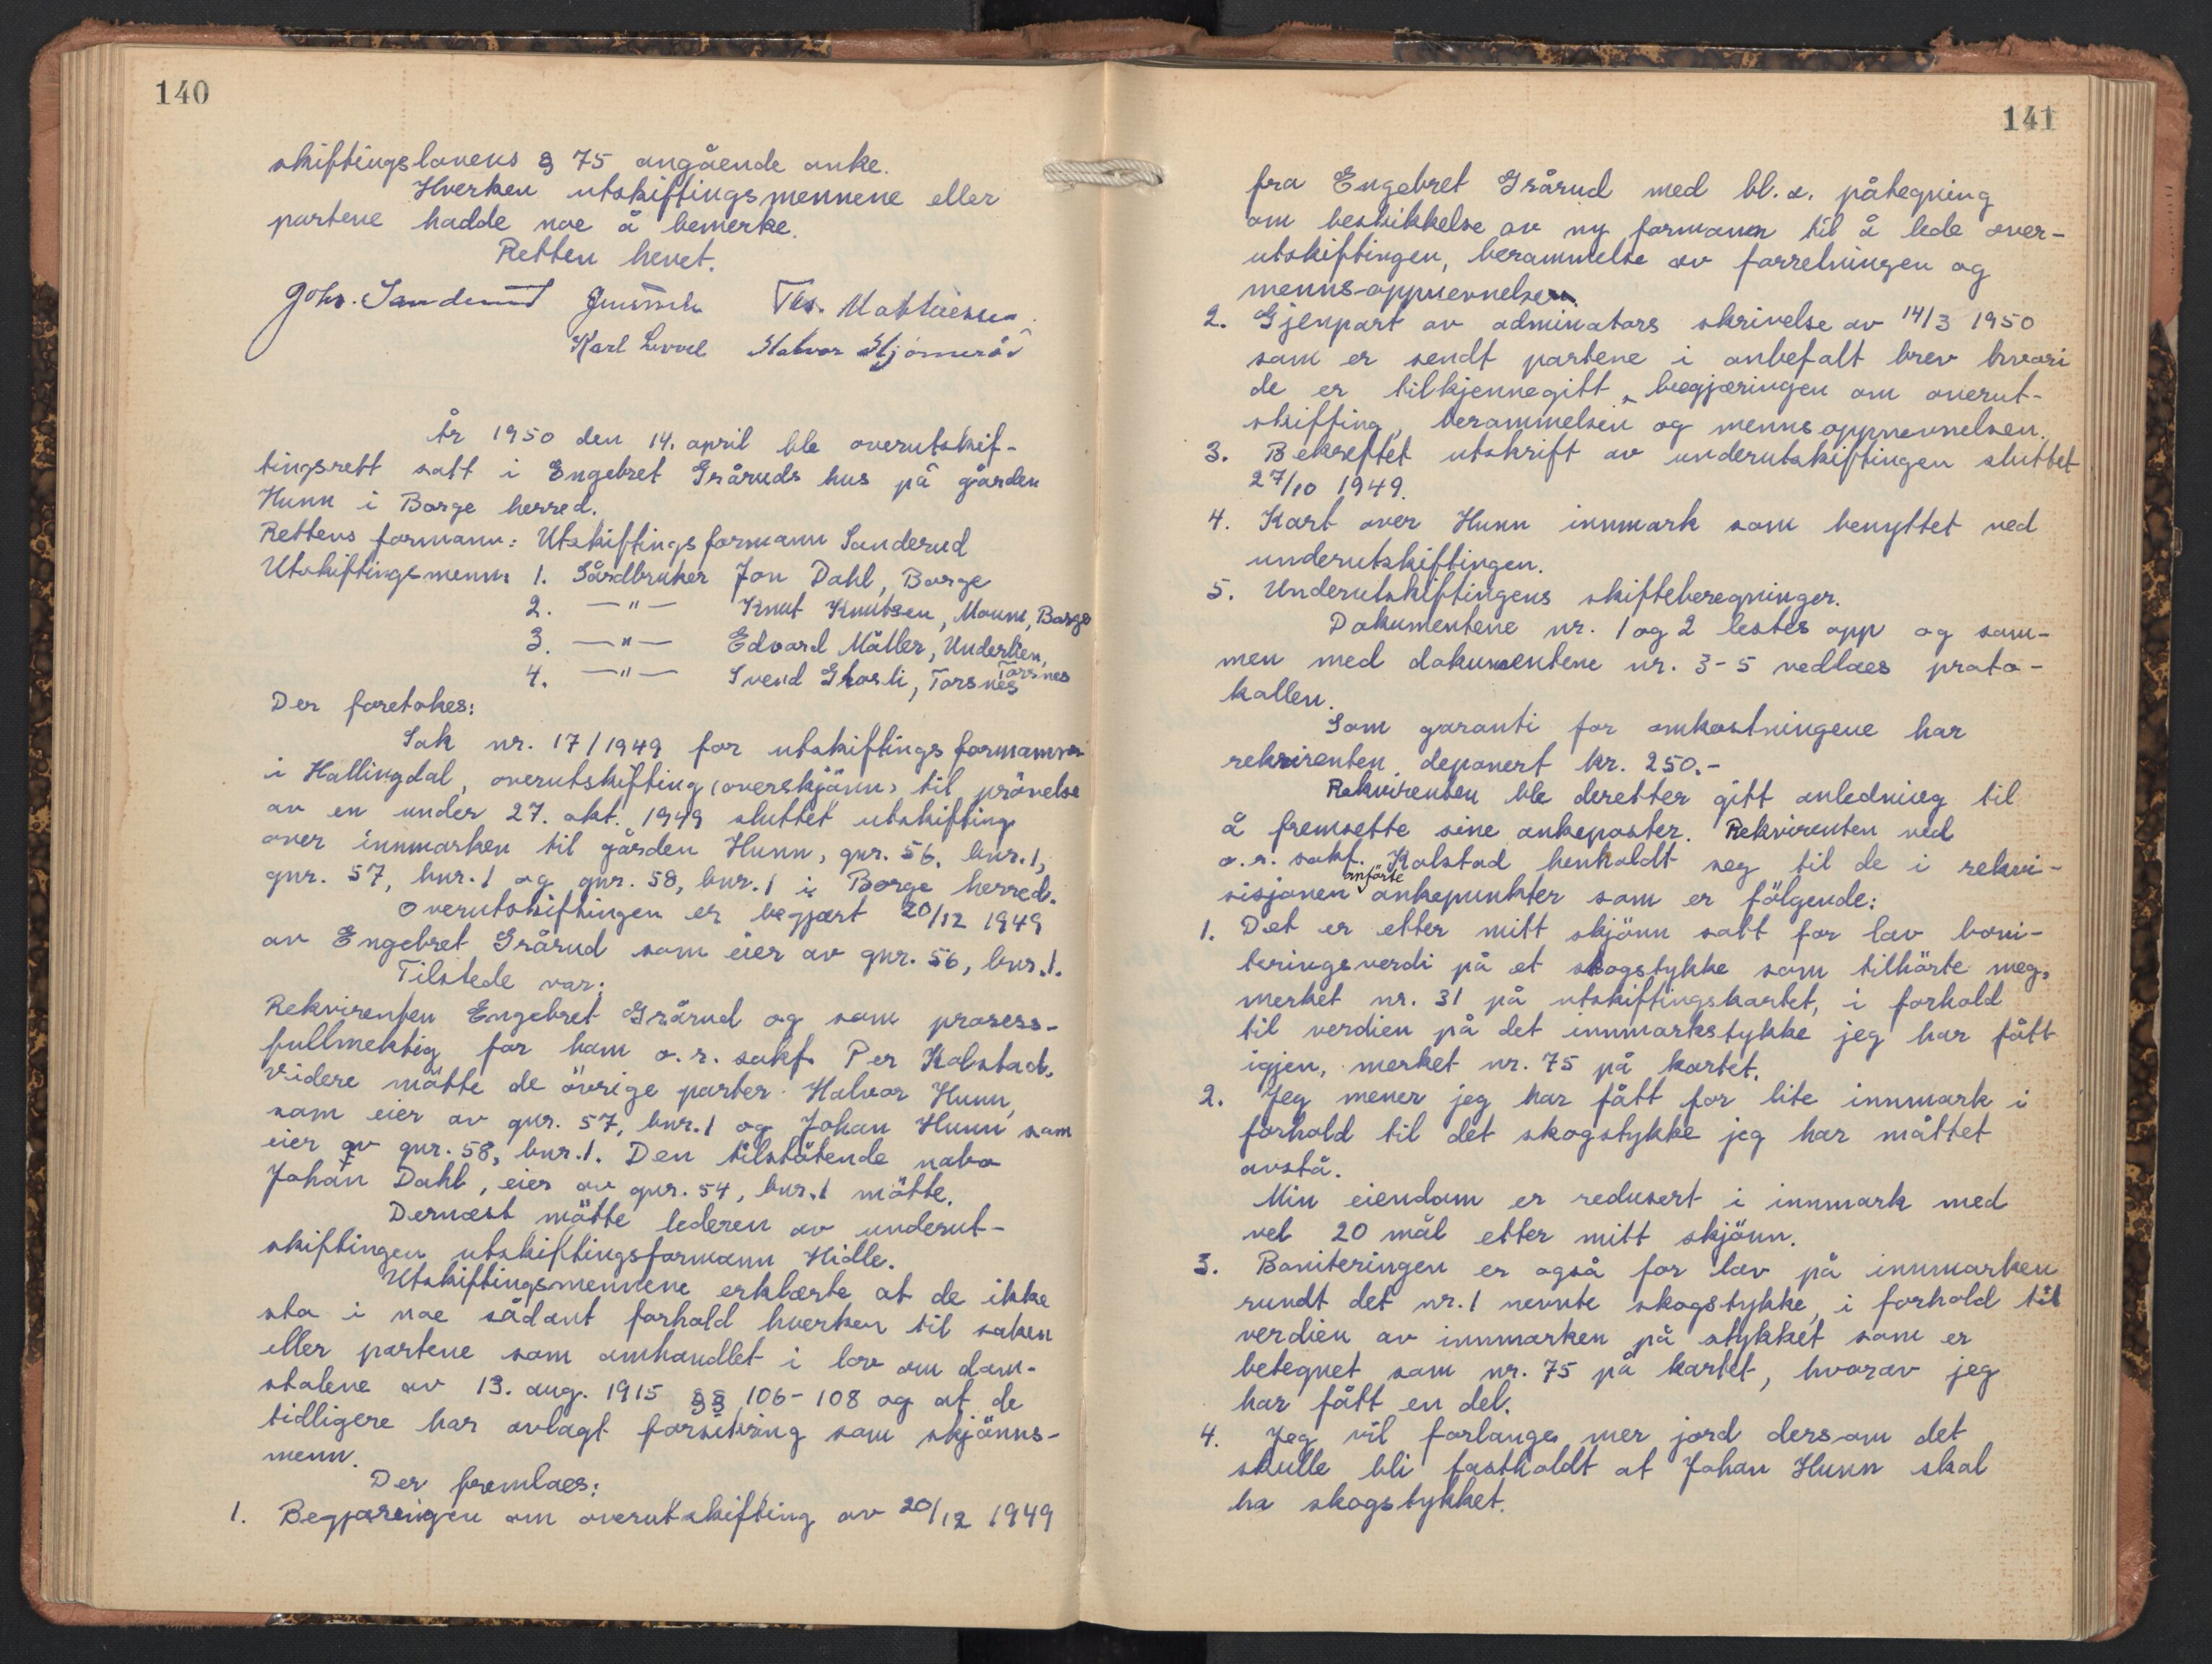 140
skiftingslovens § 75 angående anke.
Hverken utskiftingsmennene eller
partene hadde noe å bemerke.
Retten hevet.
Johs. Sanderud
Karl Halvor
År 1950 den 14. april ble overutskif-
tingsrett satt i Engebret Gråruds hus på gården
Hunn i Borge herred.
Rettens formann: Utskiftingsformann Sanderud
Utskiftingsmenn: 1. Gårdbruker Jon Dahl, Borge
2. —"— Knut Knutsen, Moum, Borge
3. —"— Edvard Möller, Underlien,
Torsnes
4. —"— Svend Grosli, Torsnes
Der foretokes:
Sak nr. 17/1949 for utskiftingsformannen
i Hallingdal, overutskifting (overskjönn) til prövelse
av en under 27. okt. 1949 sluttet utskifting
over innmarken til gården Hunn, gnr. 56, bnr. 1,
gnr. 57, bnr. 1 og gnr. 58, bnr. 1 i Borge herred.
Overutskiftingen er begjært 20/12 1949
av Engebret Grårud som eier av gnr. 56, bnr. 1.
Tilstede var:
Rekvirenten Engebret Grårud og som prosess-
fullmektig for ham o.r. sakf. Per Kolstad.
Videre mötte de övrige parter Halvor Hunn,
som eier av gnr. 57, bnr. 1 og Johan Hunn som
eier av gnr. 58, bnr. 1. Den tilstötende nabo
Johan Dahl, eier av gnr. 54, bnr. 1 mötte.
Dernæst mötte lederen av underut-
skiftingen utskiftingsformann Hidle.
Utskiftingsmennene erklærte at de ikke
sto i noe sådant forhold hverken til saken
eller partene som omhandlet i lov om dom-
stolene av 13. aug. 1915 §§ 106-108 og at de
tidligere har avlagt forsikring som skjönns-
menn.
Der fremlaes:
1. Begjæringen om overutskifting av 20/12 1949
141
fra Engebret Grårud med bl.a. påtegning
om beskikkelse av ny formann til å lede over-
utskiftingen, berammelse av forretningen og
menns-oppnevnelsen.
2. Gjenpart av adminators skrivelse av 14/3 1950
som er sendt partene i anbefalt brev hvori
de er tilkjennegitt begjæringen om overut-
skifting, berammelsen og mennsoppnevnelsen.
3. Bekreftet utskrift av underutskiftingen sluttet
27/10 1949.
4. Kart over Hunn innmark som benyttet ved
underutskiftingen.
5. Underutskiftingens skifteberegninger.
Dokumentene nr. 1 og 2 lestes opp og sam-
men med dokumentene nr. 3-5 vedlaes proto-
kollen.
Som garanti for omkostningene har
rekvirenten deponert kr. 250.-
Rekvirenten ble deretter gitt anledning til
å fremsette sine ankeposter. Rekvirenten ved
o.r. sakf. Kolstad henholdt seg til de i rekvi-
sisjonen anförte ankepunkter som er fölgende:
1. Det er etter mitt skjönn satt for lav boni-
teringsverdi på et skogstykke som tilhörte meg,
merket nr. 31 på utskiftingskartet, i forhold
til verdien på det innmarkstykke jeg har fått
igjen, merket nr. 75 på kartet.
2. Jeg mener jeg har fått for lite innmark i
forhold til det skogstykke jeg har måttet
avstå.
Min eiendom er redusert i innmark med
vel 20 mål etter mitt skjönn.
3. Boniteringen er også for lav på innmarken
rundt det nr. 1 nevnte skogstykke, i forhold til
verdien av innmarken på stykket som er
betegnet som nr. 75 på kartet, hvorav jeg
har fått en del.
4. Jeg vil forlange mer jord dersom det
skulle bli fastholdt at Johan Hunn skal
ha skogstykket.